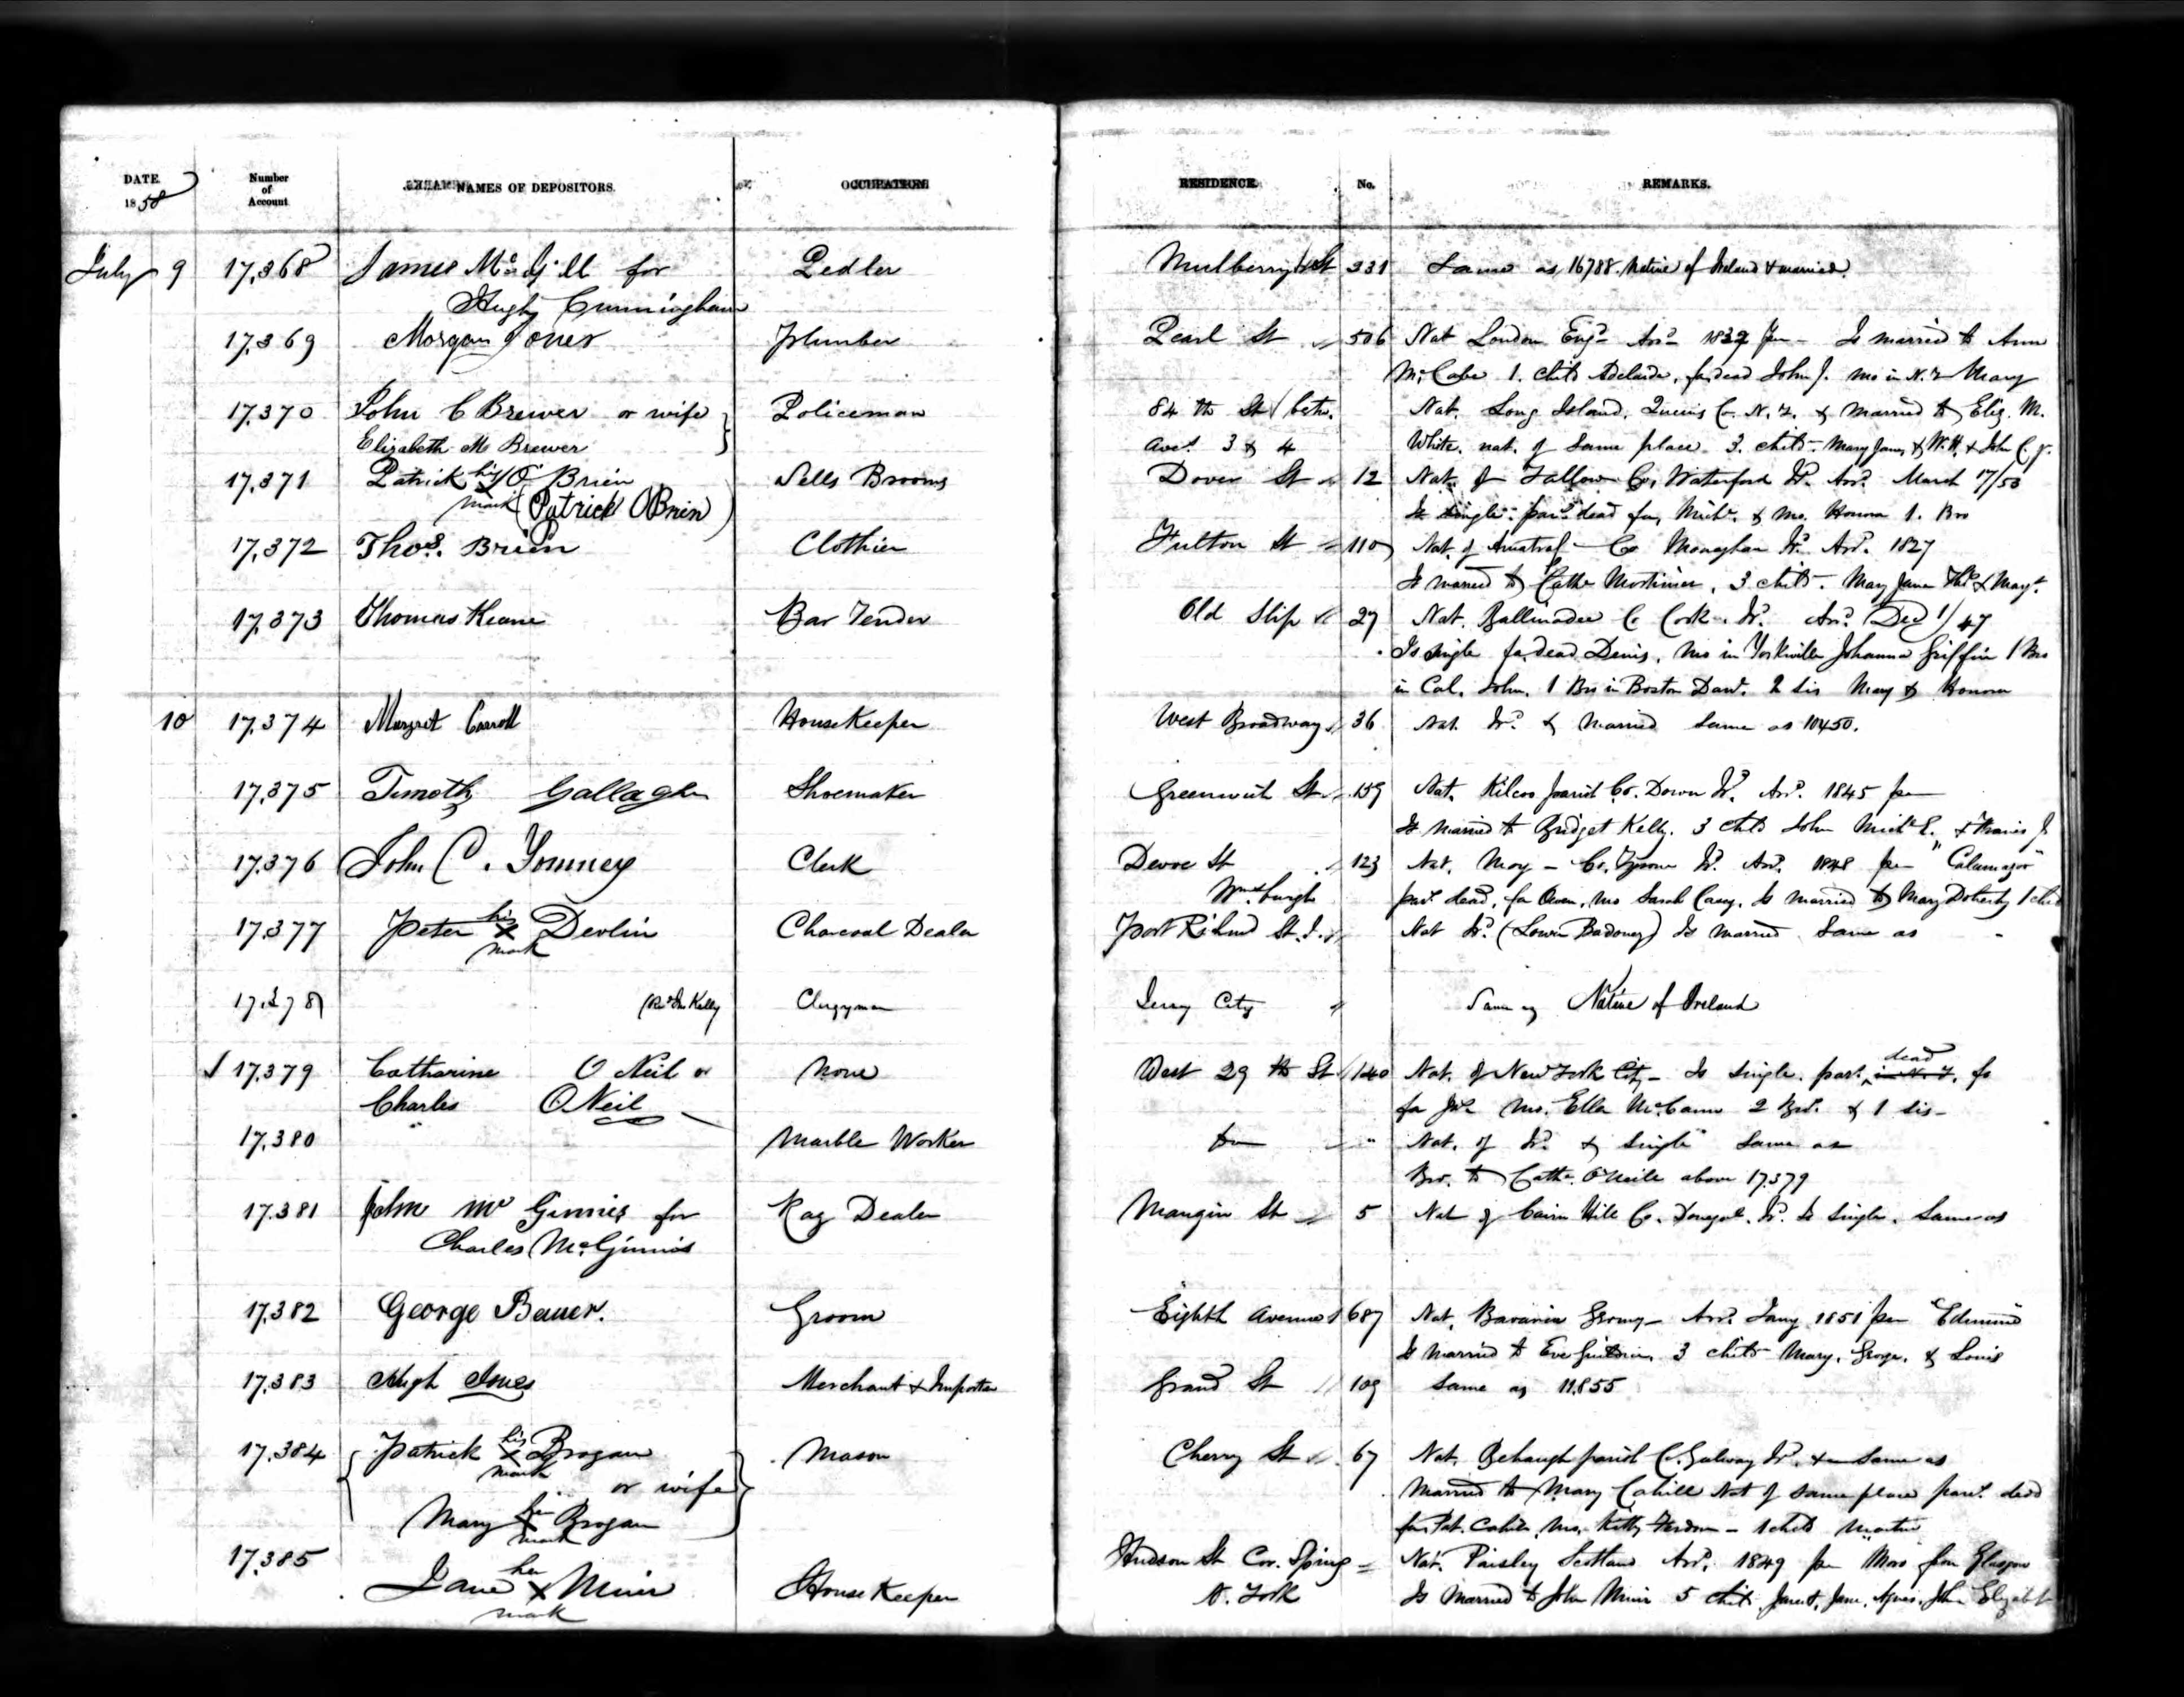 DATE 1858 Number of Account NAMES OF DEPOSITORS. OCCUPATION RESIDENCE No. REMARKS.
July 9 17,368 James McGill for Pedler Mulberry St 331 Same as 16788. Native of Ireland & married.
Hugh Cunningham
17,369 Morgan Jones Plumber Pearl St 506 Nat London Engd Arrd 1839 per – Is married to Ann
McCabe 1. child Adelaide, fa, dead John J. mo in N.Y. Mary
17,370 John C Brewer or wife Policeman 84 th St betw. Nat. Long Island, Queens Co. N.Y. & married to Eliz. M.
Elizabeth M Brewer aves. 3 & 4 White, nat. of same place 3. childn Mary Jane, & W. H. & John C. Jr.
17,371 Patrick his X O'Brien Sells Brooms Dover St 12 Nat. of Tallow Co. Waterford Ird. Arrd. March 17/53
mark (Patrick OBrien) Is single. pars. dead fa, Michl. & mo. Honora 1. Bro
17,372 Thos. Brien Clothier Fulton St 110 Nat. of Co Monaghan Ird. Arrd. 1827
Is married to Cathe Mortimer, 3 childn. Mary Jane & Magt.
17,373 Thomas Keane Bar Tender Old Slip 27 Nat. Ballinadee Co Cork. Ird. Arrd. Dec 1/47
Is single fa, dead Denis, mo in Yorkville Johanna Griffin 1 Bro
in Cal. John. 1 Bro in Boston Davd. 2 sis Mary & Honora
10 17,374 Margret Carroll HouseKeeper West Broadway 36 Nat. Ird. & Married same as 10450.
17,375 Timothy Gallagher Shoemaker Greenwich St 159 Nat. Kilcoo parish Co. Down Ird. Arrd. 1845 per
Is married to Bridget Kelly. 3 childn John Michl E. & Francis J
17,376 John C. Tomney Clerk Devoe St 123 Nat. Moy – Co. Tyrone Ird. Arrd. 1848 per
Wmsburgh pars. dead, fa Owen, mo Sarah Casey. Is married to Mary Doherty 1 child
17,377 Peter his X Devlin Charcoal Dealer Port Richmd St. I. Nat Ird. (Lower Badoney) Is married Same as
mark
17,378 (Rev Jn Kelly Clergyman Jersey City Same as Native of Ireland
17,379 Catharine O Neil or None West 29 th St 140 Nat. of New York City – Is single. pars. dead in N.Y. fa
Charles ONeil fa Jno. mo. Ella McCann 2 Bro. & 1 sis –
17,380 Marble Worker do " Nat. of Ird. & single Same as
Bro. to Cathe. O'Neill above 17379
17,381 John Mc Ginnis for Rag Dealer Mangin St 5 Nat of Cairn Hill Co. Donegal. Ird. Is single. Same as
Charles McGinnis
17,382 George Bauer. Groom Eighth Avenue 687 Nat. Bavaria Germy – Arrd. Jany 1851 per "Edmund"
Is married to Eve 3 childn Mary, George, & Louis
17,383 Hugh Jones Merchant & Importer Grand St 109 Same as 11.855
17,384 Patrick his X Brogan Mason Cherry St 67 Nat. parish Co. Galway Ird. same as
mark or wife Married to Mary Cahill Nat of same place pars. dead
Mary her X Brogan fa, Pat. Cahill, mo. Kitty – 1 child Martin
mark
17,385 Hudson St Cor. Spring Nat. Paisley Scotland Arrd. 1849 per from Glasgow
Jane her X Muir House Keeper N. York Is Married to John Muir 5 childn Janet, Jane, Agnes, John Elizabeth
mark